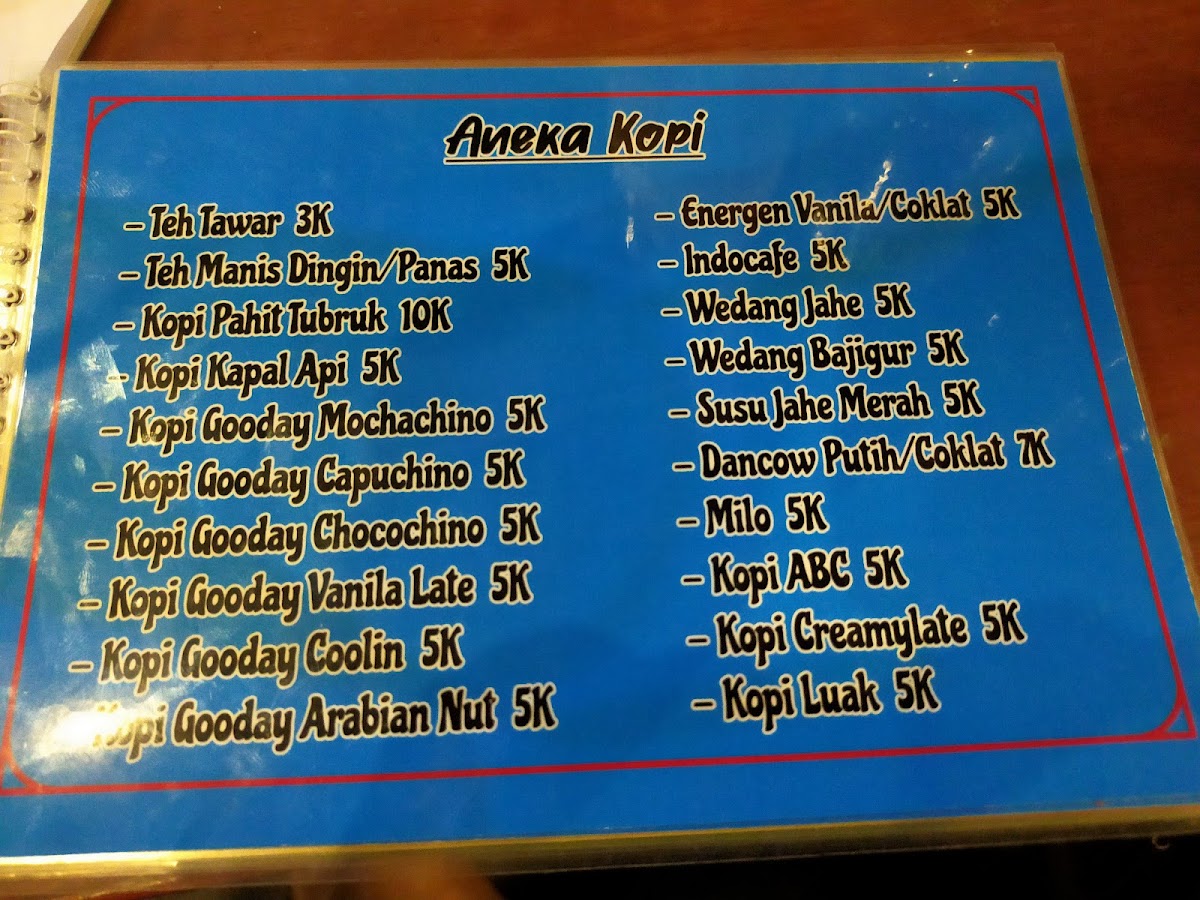 Aneka Kopi
– Teh Tawar 3K
– Teh Manis Dingin/Panas 5K
– Kopi Pahit Tubruk 10K
– Kopi Kapal Api 5K
– Kopi Gooday Mochachino 5K
– Kopi Gooday Capuchino 5K
– Kopi Gooday Chocochino 5K
– Kopi Gooday Vanila Late 5K
– Kopi Gooday Coolin 5K
Kopi Gooday Arabian Nut 5K
– Energen Vanila/Coklat 5K
– Indocafe 5K
– Wedang Jahe 5K
– Wedang Bajigur 5K
– Susu Jahe Merah 5K
– Dancow Putih/Coklat 7K
– Milo 5K
– Kopi ABC 5K
– Kopi Creamylate 5K
– Kopi Luak 5K